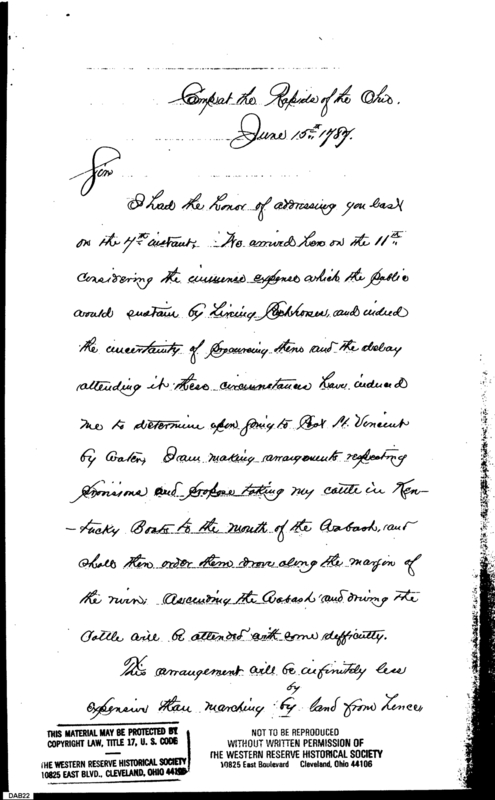 Camp at the Rapids of the Ohio.
June 15th 1787.
Sir
I had the honor of addressing you last
on the 7th instant, We arrived here on the 11th
considering the immense expense which the public
would sustain by hiring Packhorses, and indeed
the uncertainty of procuring them and the delay
attending it these circumstances have induced
me to determine upon going to Post St. Vincent
by water, I am making arrangements respecting
provisions and propose taking my cattle in Ken-
-tucky Boats to the mouth of the Wabash, and
shall then order them drove along the margin of
the river. Ascending the Wabash and driving the
Cattle will be attended with some difficulty.
This arrangement will be infinitely less
by
expensive than marching by land from hence
THIS MATERIAL MAY BE PROTECTED BY
COPYRIGHT LAW, TITLE 17, U. S. CODE
THE WESTERN RESERVE HISTORICAL SOCIETY
10825 EAST BLVD., CLEVELAND, OHIO 44106
NOT TO BE REPRODUCED
WITHOUT WRITTEN PERMISSION OF
THE WESTERN RESERVE HISTORICAL SOCIETY
10825 East Boulevard Cleveland, Ohio 44106
DAB22